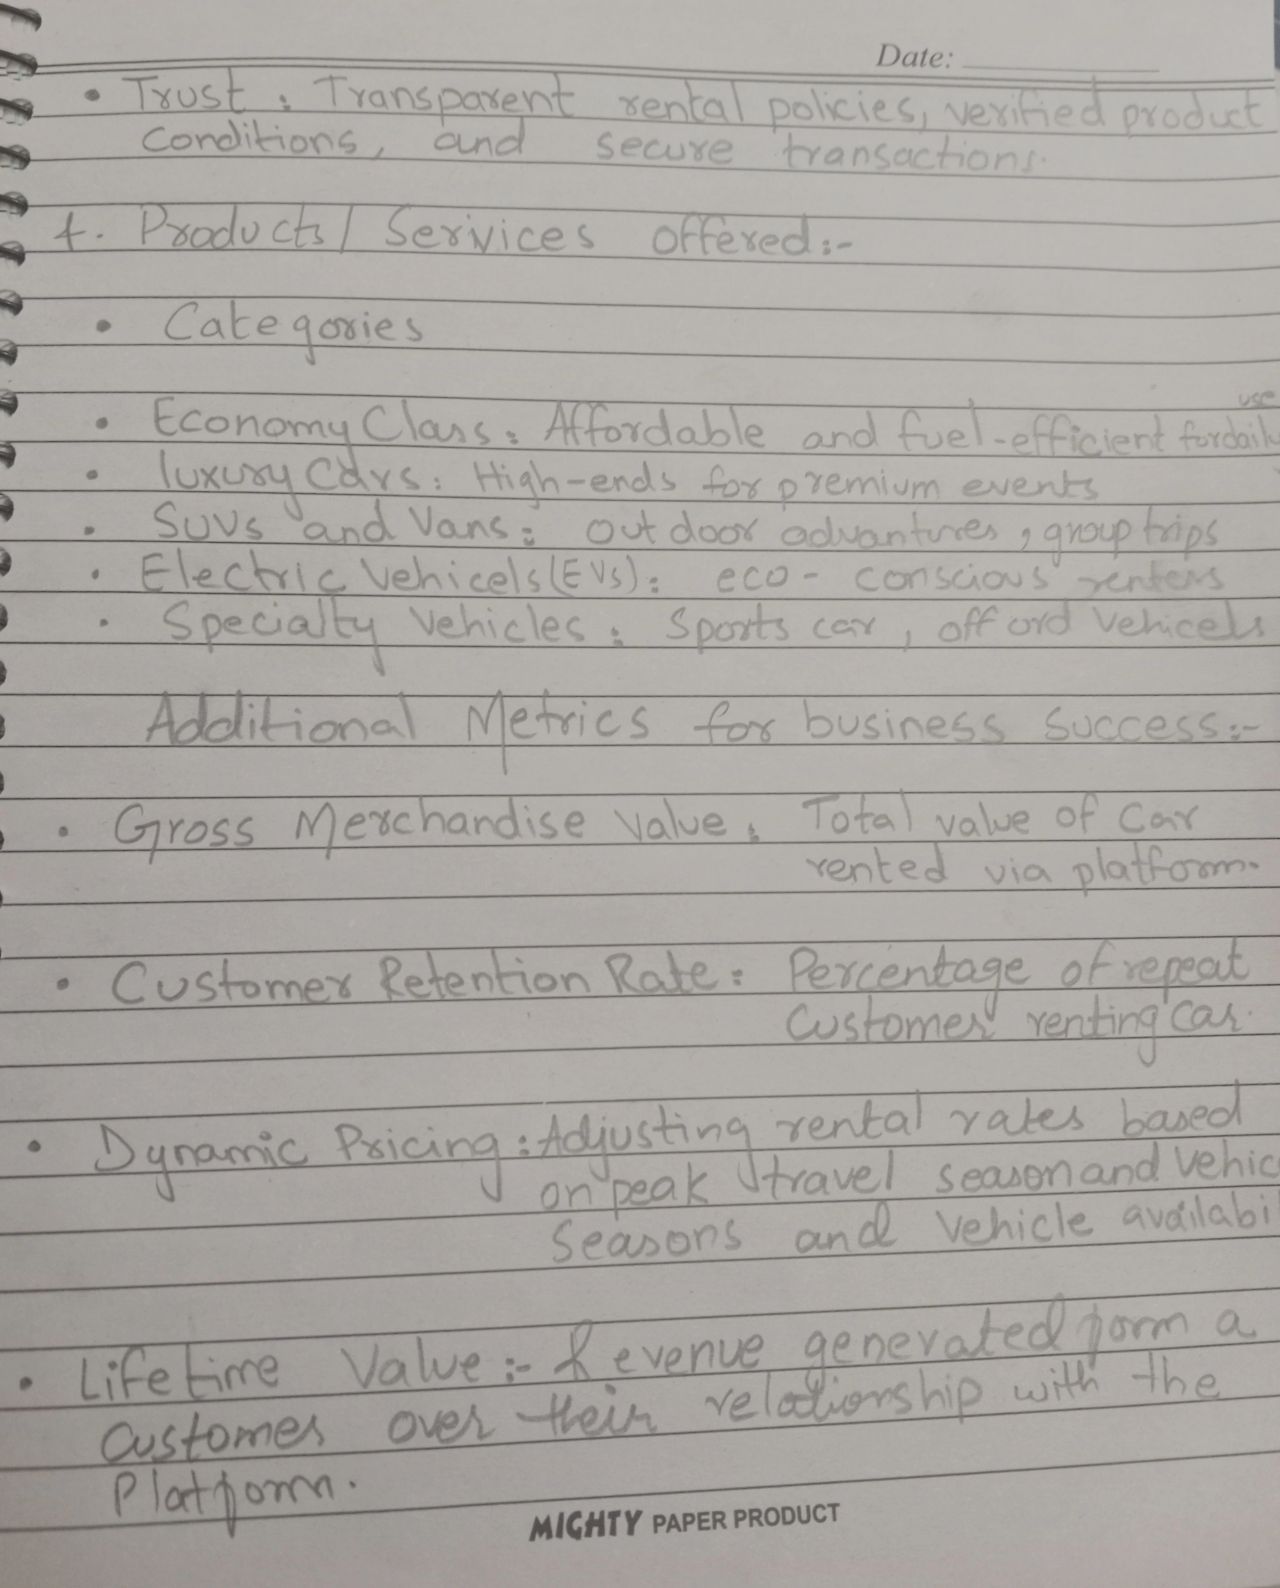 Date:
• Trust : Transparent rental policies, verified product
conditions, and secure transactions.
4. Products / Services offered :-
• Categories
use
• Economy Class : Affordable and fuel-efficient for daily
• luxury Cars : High-ends for premium events
• SUVs and Vans : outdoor advantures, group trips
• Electric Vehicels (EVs) : eco - conscious renters
• Specialty Vehicles : Sports car, off ord Vehicels
Additional Metrics for business success :-
• Gross Merchandise Value : Total value of Car
rented via platform.
• Customer Retention Rate : Percentage of repeat
Customer renting car.
• Dynamic Pricing : Adjusting rental rates based
on peak travel season and Vehic
Seasons and Vehicle availabi
• Lifetime Value :- Revenue generated form a
customer over their relationship with the
Platform.
MIGHTY PAPER PRODUCT